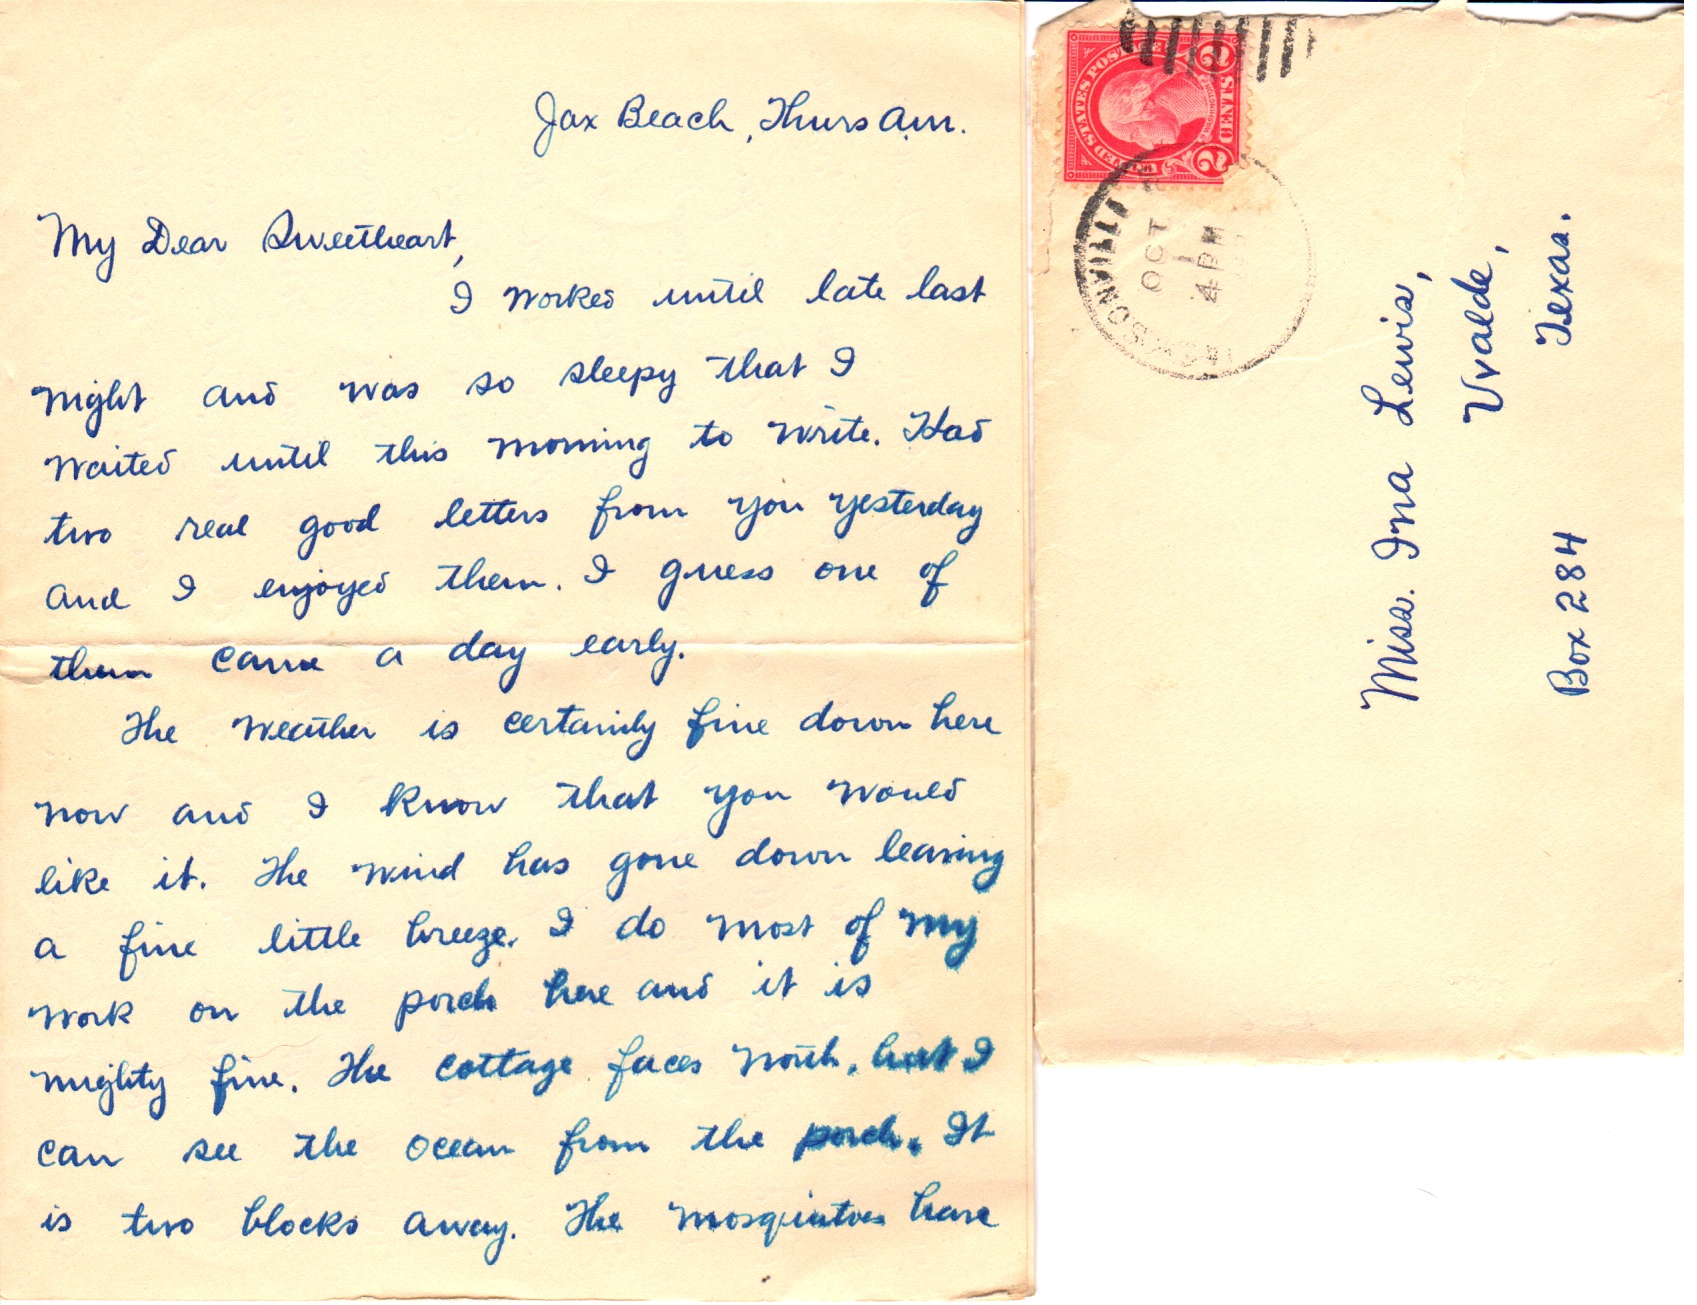 Jax Beach, Thurs am.
My Dear Sweetheart,
I worked until late last
night and was so sleepy that I
waited until this morning to write. Had
two real good letters from you yesterday
and I enjoyed them. I guess one of
them came a day early.
The weather is certainly fine down here
now and I know that you would
like it. The wind has gone down leaving
a fine little breeze. I do most of my
work on the porch here and it is
mighty fine. The cottage faces north, but I
can see the ocean from the porch. It
is two blocks away. The mosquitoes have
UNITED STATES POSTAGE
WASHINGTON
2 CENTS 2
JACKSONVILLE
OCT
1
4 PM
Miss. Ina Lewis,
Uvalde,
Box 284 Texas.